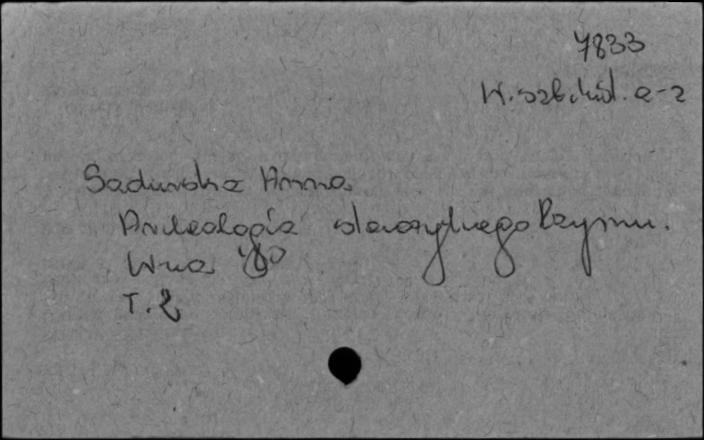 7833
W. szt. kl. a-z
Sadurska Anna
Archeologia starożytnego Rzymu.
Wwa 80
T. 2